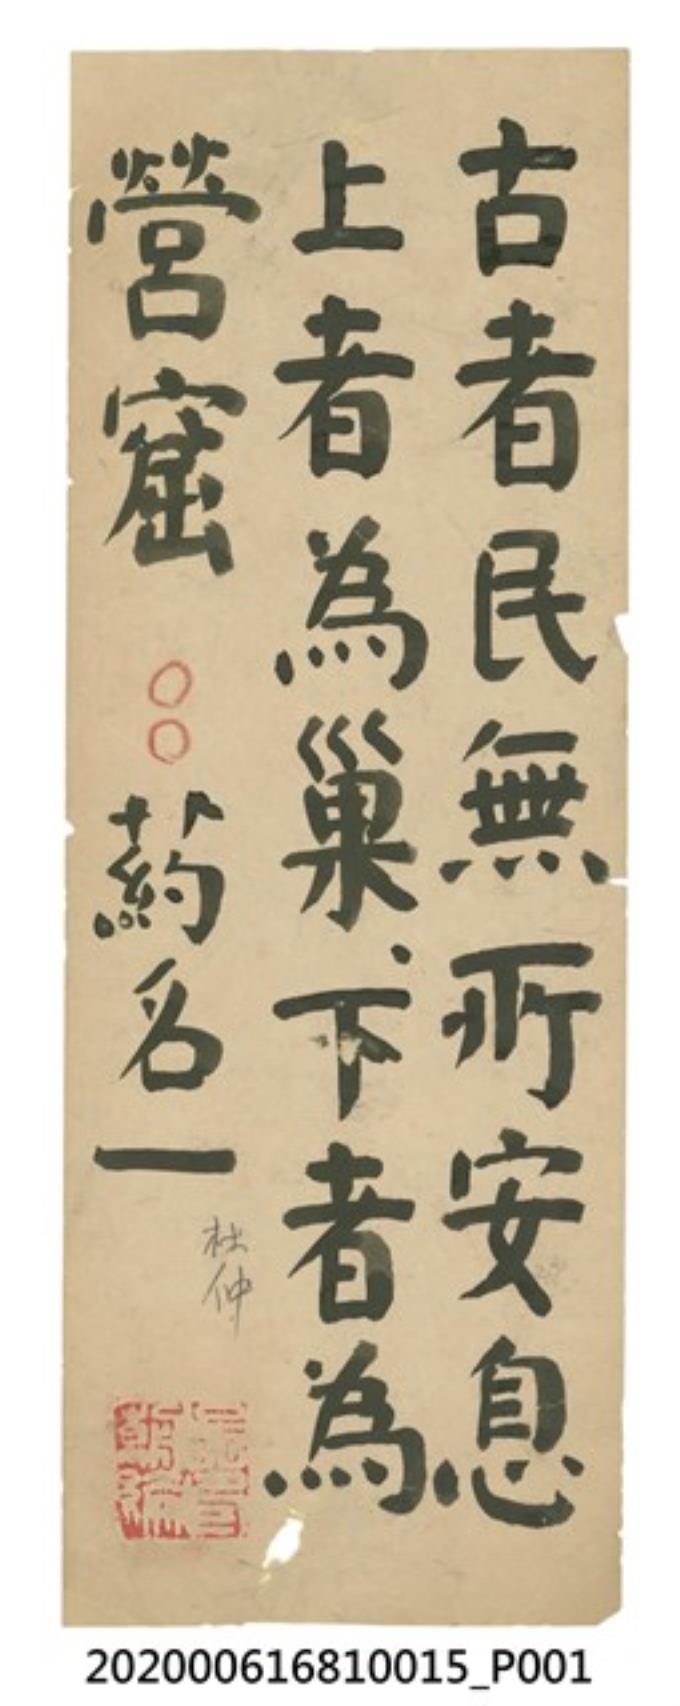 古者民無所安息
上者為巢、下者為
營窟 ○○ 葯名一
杜仲
202000616810015_P001